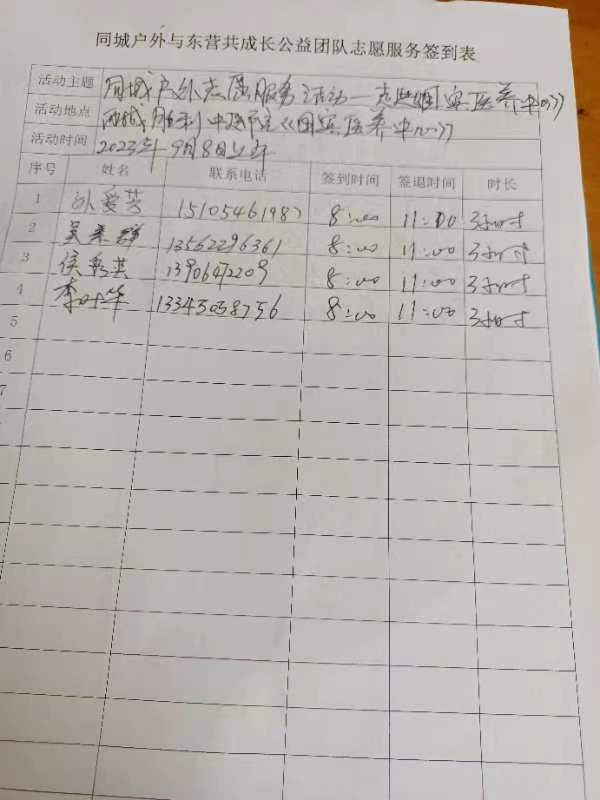 同城户外与东营共成长公益团队志愿服务签到表
活动主题 同城户外志愿服务活动—走进国宾医养中心》
活动地点 西城胜利 中心《国宾医养中心》
活动时间 2023年9月8日上午
序号 姓名 联系电话 签到时间 签退时间 时长
1 孙爱芬 1510546198 8:00 11:00 3小时
2 吴 群 13562296361 8:00 11:00 3小时
3 侯 英 13906472209 8:00 11:00 3小时
4 李叶华 13345058756 8:00 11:00 3小时
5
6
7
8